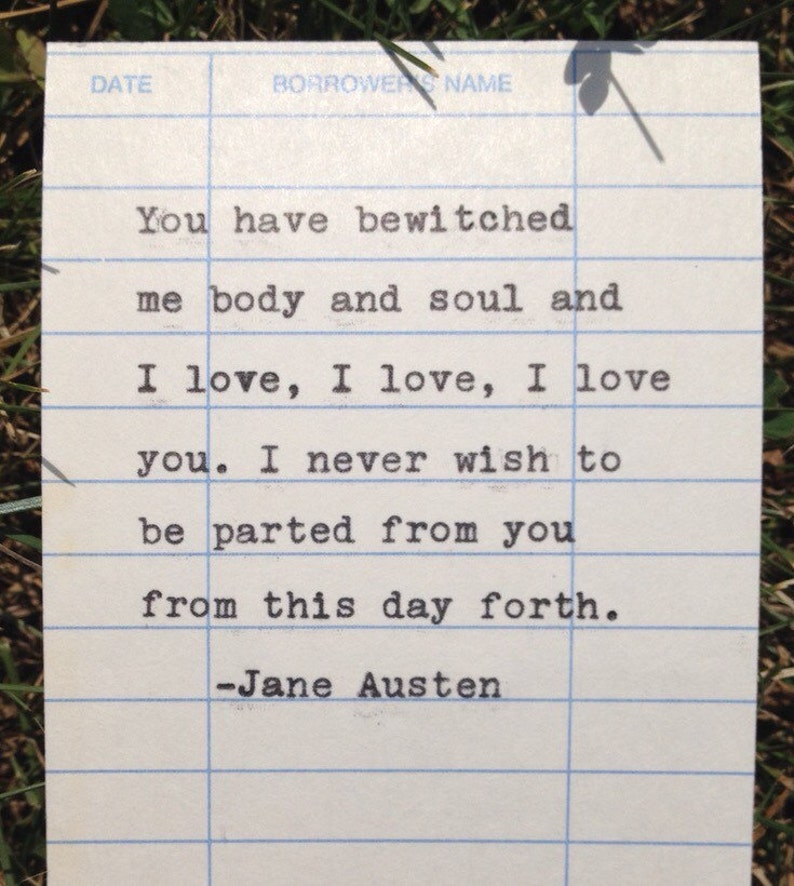 DATE BORROWER'S NAME
You have bewitched
me body and soul and
I love, I love, I love
you. I never wish to
be parted from you
from this day forth.
-Jane Austen